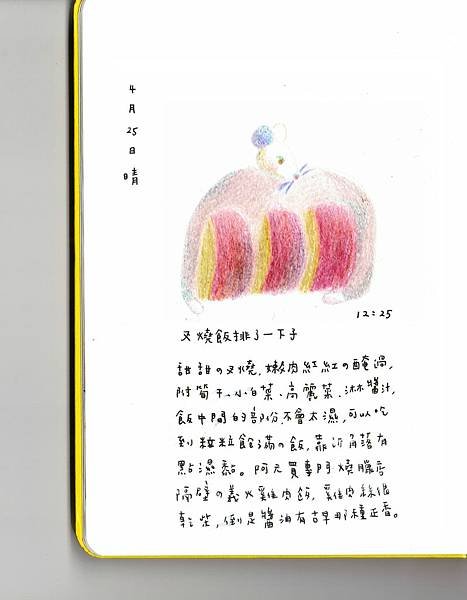 4月25日 晴
12:25
叉燒飯排了一下子
甜甜の叉燒,嫩肉紅紅の醃過,
附筍干、小白菜、高麗菜、淋醬汁,
飯中間的部份,不會太濕,可以吃
到粒粒飽滿の飯,靠近角落有
點濕黏。阿元買專門燒臘店
隔壁の義火雞肉飯,雞肉絲很
乾柴,倒是醬油有古早那種正香。